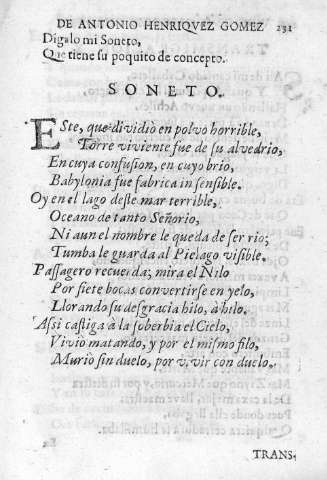 DE ANTONIO HENRIQVEZ GOMEZ 231
Digalo mi Soneto,
Que tiene su poquito de concepto.
SONETO.
ESte, que dividiò en polvo horrible,
Torre viviente fue de su alvedrio,
En cuya confusion, en cuyo brio,
Babylonia fue fabrica insensible.
Oy en el lago deste mar terrible,
Oceano de tanto Señorio,
Ni aun el nombre le queda de ser rio;
Tumba le guarda al Pielago visible.
Passagero recuerda; mira el Nilo
Por siete bocas convertirse en yelo,
Llorando su desgracia hilo, à hilo.
Assi castiga à la soberbia el Cielo,
Vivio matando, y por el mismo filo,
Murio sin duelo, por v.vir con duelo.
TRANS-